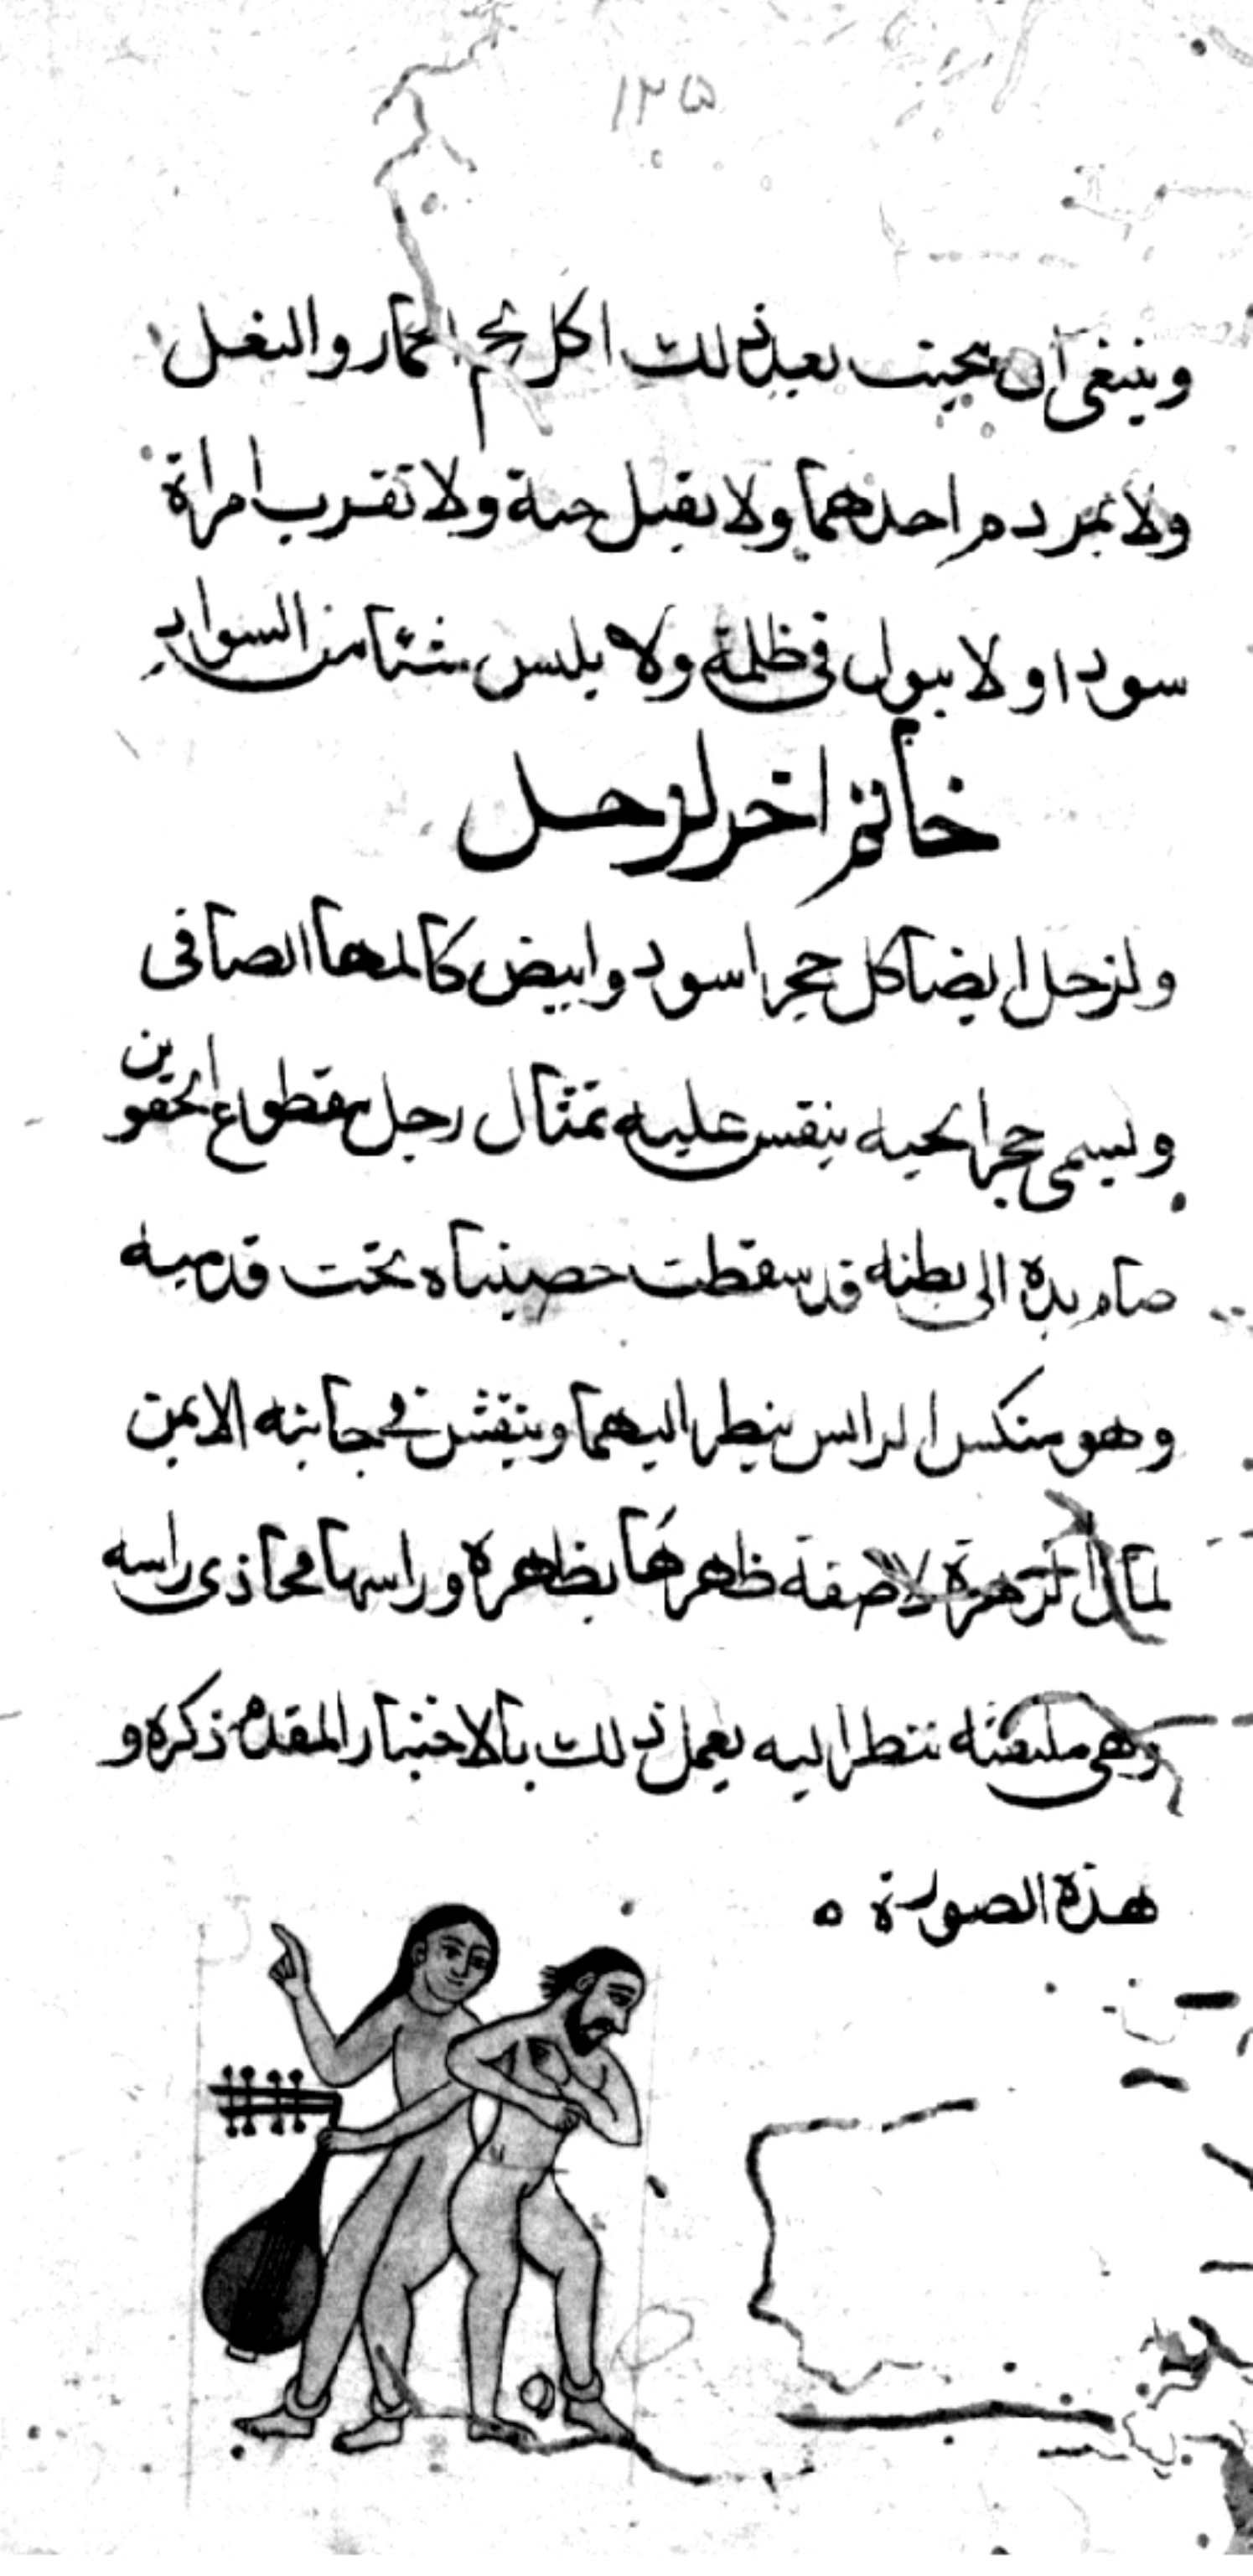 ١٢٥
وينبغى ان يجتنب بعد ذلك اكل لحم الحمار والبغل
ولا يمر دم احدهما ولا يقتل حية ولا تقرب امراة
سودا ولا يبول فى ظلمة ولا يلبس شئا من السواد
خاتم اخر لزحل
ولزحل ايضا كل حجر اسود وابيض كالمها الصافى
ويسمى حجر الحيه ينقس عليه تمثال رجل مقطوع الحقوين
ضام يده الى بطنه قد سقطت خصيتاه تحت قدميه
وهو منكس الراس ينظر اليهما وينقش فى جانبه الايمن
تمثال الزهرة لاصقة ظهرها بظهره وراسها محاذى راسه
وهى ملتفته تنظر اليه يعمل ذلك بالاختيار المقدم ذكره و
هذه الصورة ه